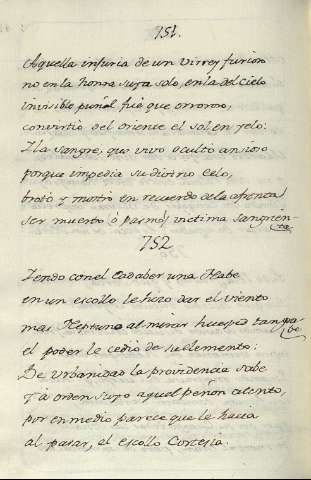 751.
Aquella injuria de un Virrey furioso
no en la honra suya solo, en la del Cielo
invisible puñal fué que orroroso,
convirtió del oriente el sol en yelo:
I la sangre, que vivo ocultó ansioso
porque impedia su divino Celo,
brotó y mostró en recuerdo de la afrenta
ser muerto ó pasmó, victima sangrienta
752
Iendo con el Cadaber una Nabe
en un escollo le hizo dar el viento
mas Neptuno al mirar huesped tan grabe
el poder le cedio de su elemento:
De Urbanidad la providencia sabe
I á orden suyo aquel peñon atento,
por en medio parece que le hacia
al pasar, el escollo Cortesia.